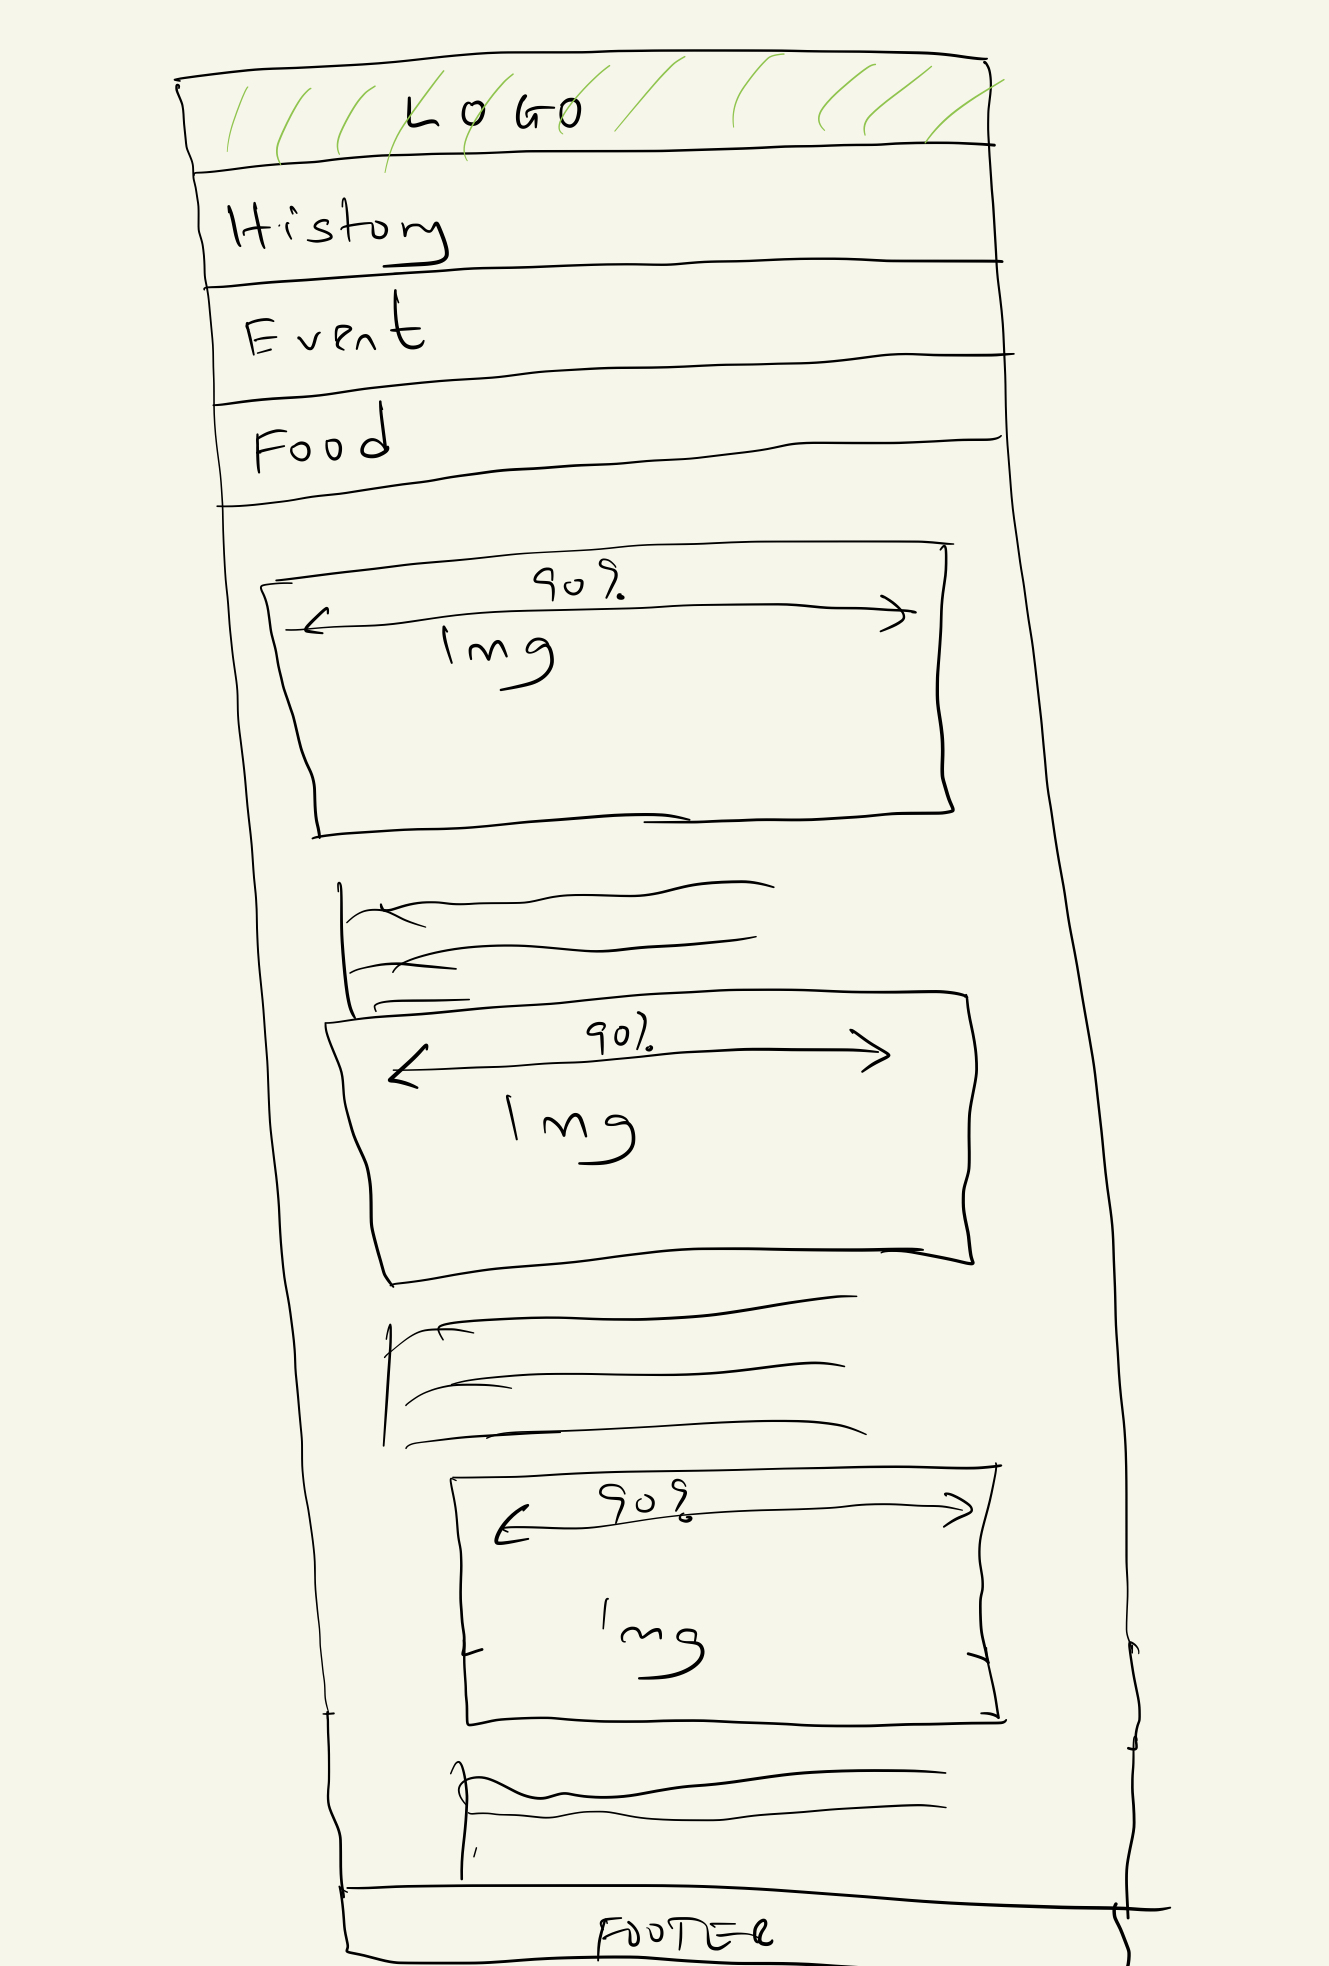 LOGO
History
Event
Food
90%
Img
90%
Img
90%
Img
FOOTER